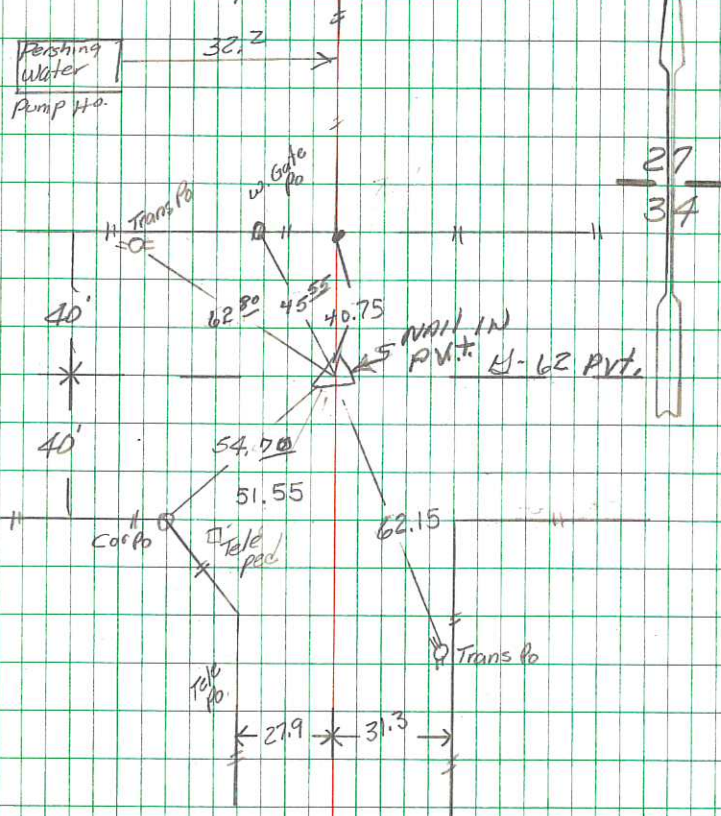 32.2
Pershing
Water
Pump Ho.
27
34
Trans Po
W. Gate
Po
40'
62.80
45.55
40.75
NAIL IN
PVT. H-62 PVT.
40'
54.70
51.55
62.15
Cor Po
Tele
ped
Trans Po
Tele
po.
27.9
31.3